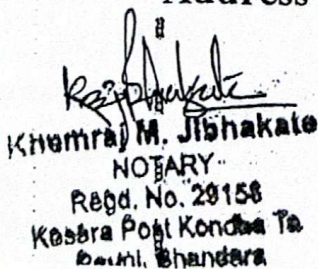 Address
Khemraj M. Jibhakate
NOTARY
Regd. No. 29158
Kesara Post Kondha Ta
Bhandara